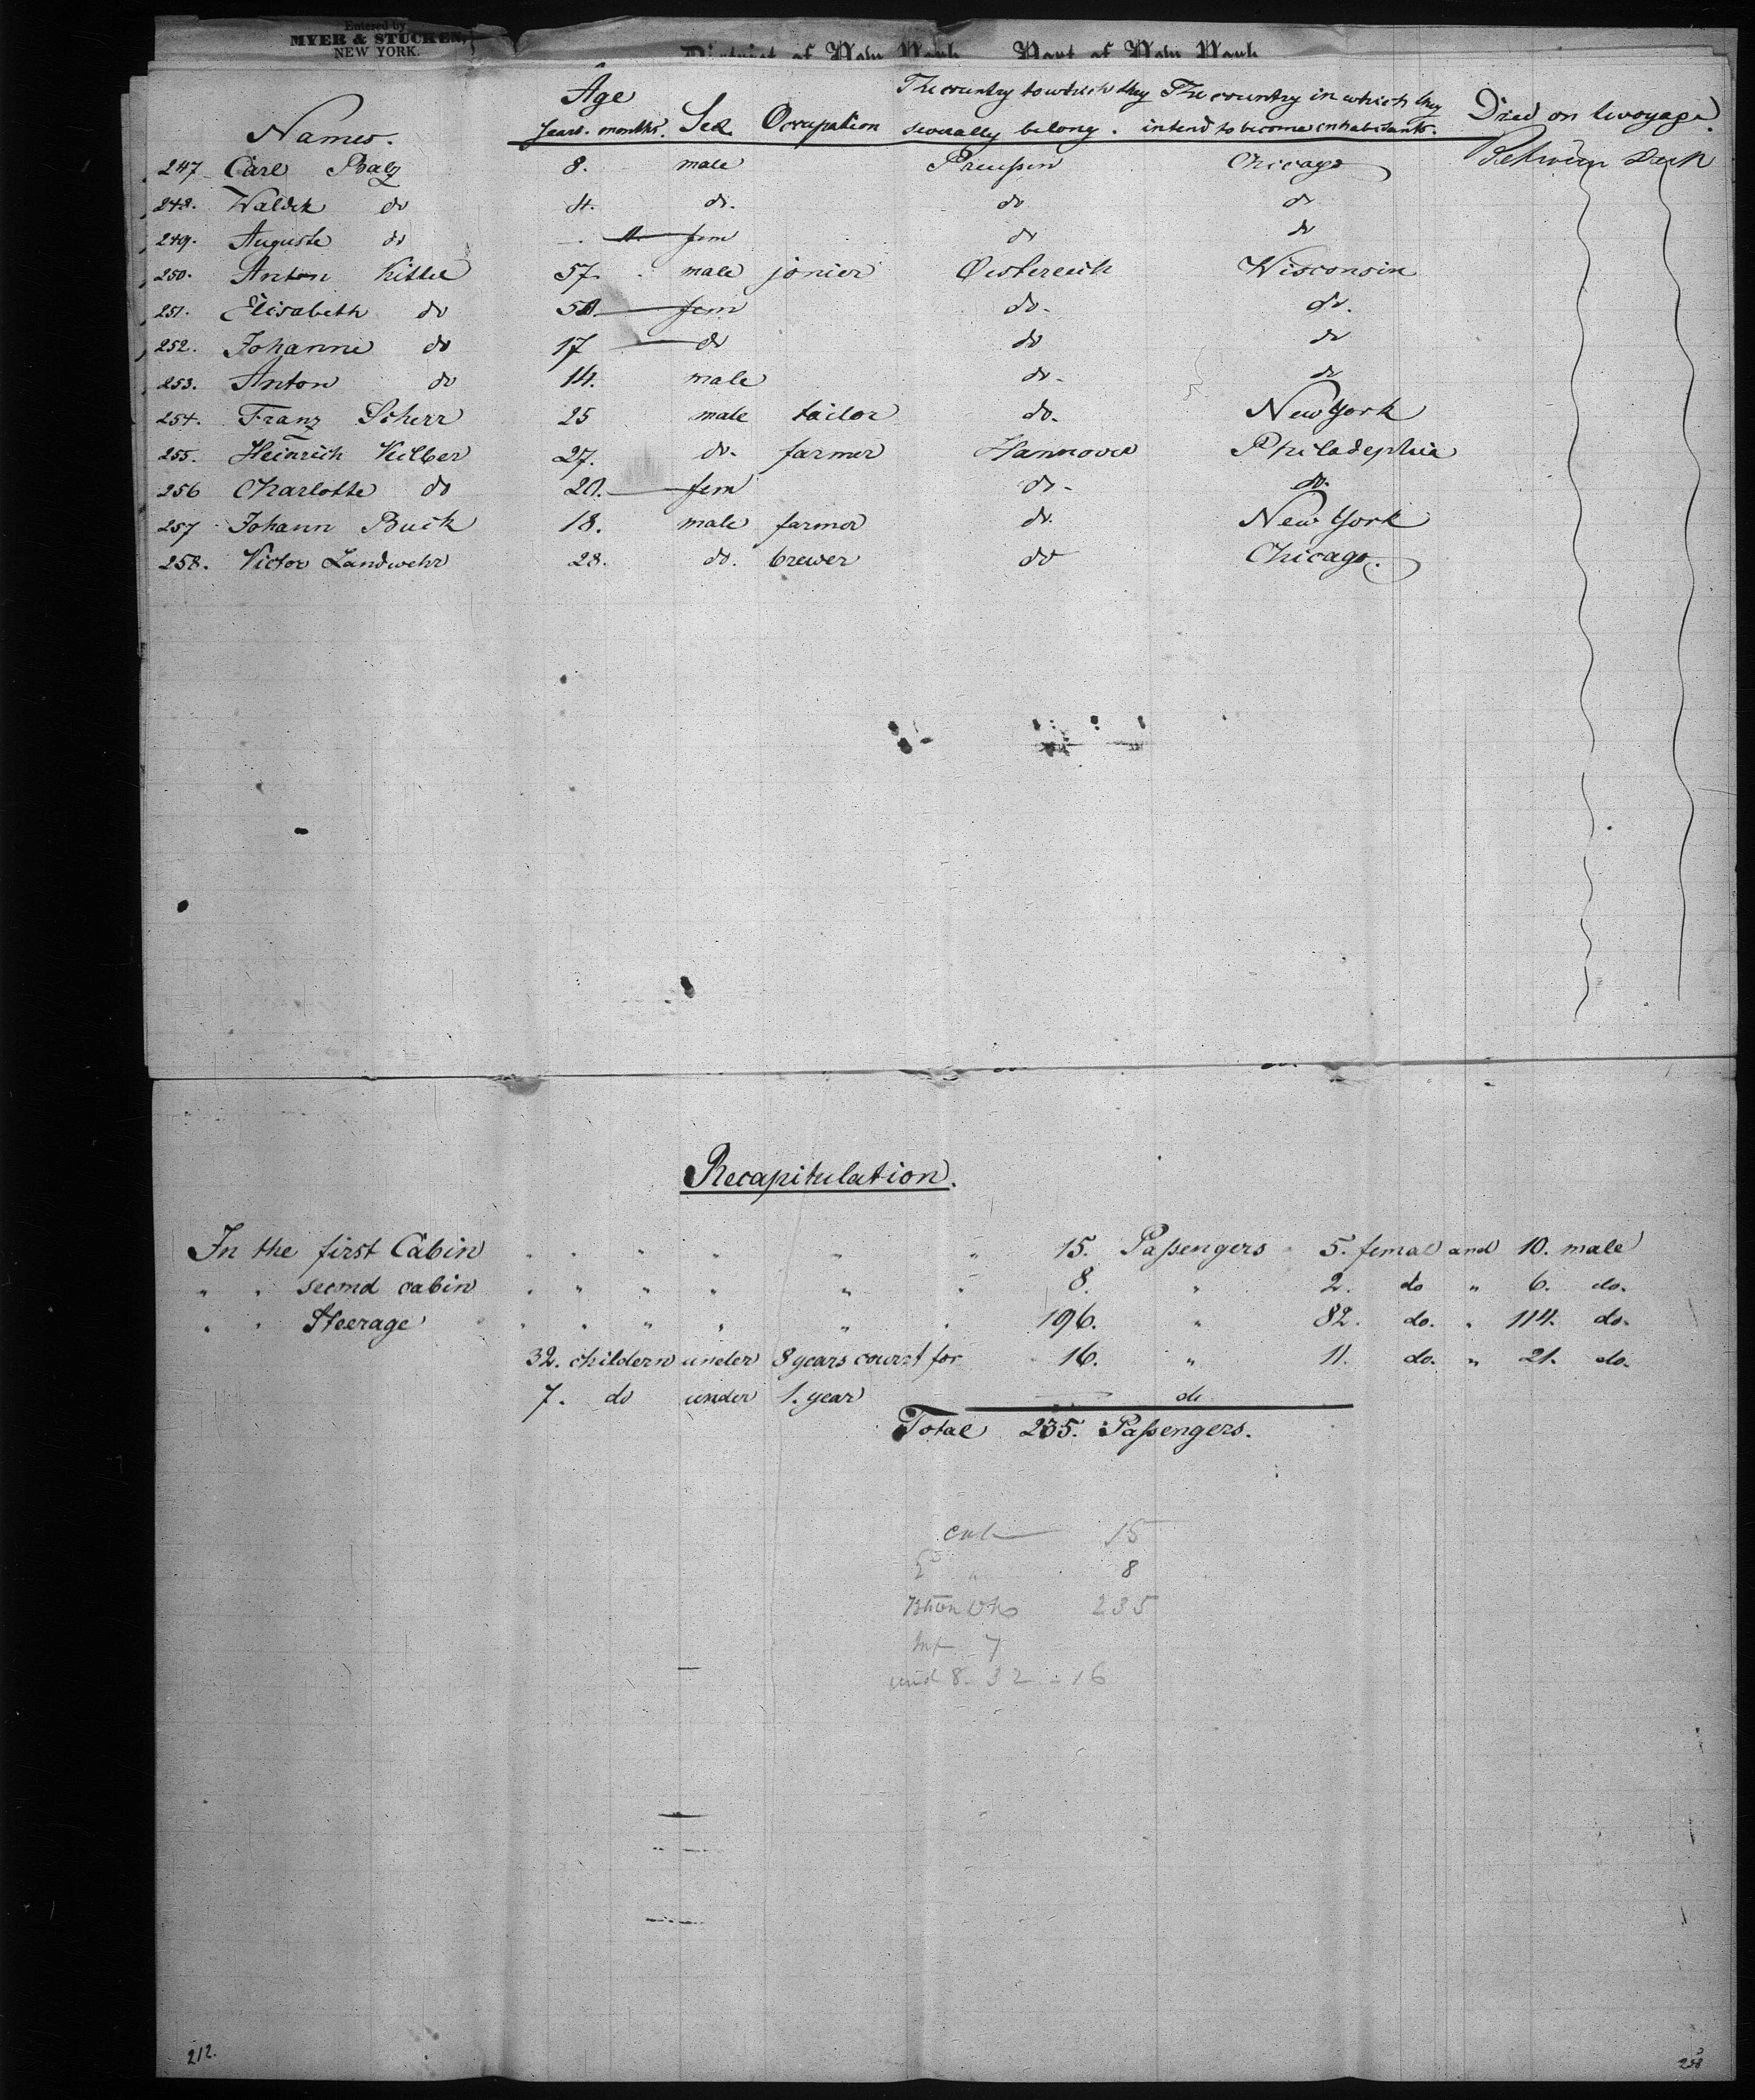 Entered by
MYER & STUCKEN,
NEW YORK.
District of New York Port of New York
Age The country to which they The country in which they Died on the voyage.
Names. Years. months. Sex Occupation severally belong. intend to become inhabitants.
247 Carl Balz 8. male Preußen Chicago Between Deck
248. Waldek do 4. do. do do
249. Auguste do fem do do
250. Anton Kittel 57. male jonier Oestereich Wisconsin
251. Elisabeth do fem do. do.
252. Johanne do 17 do do do
253. Anton do 14. male do. do
254. Franz Scherr 25 male tailor do. New York
255. Heinrich Kilber 27. do. farmer Hannover Philadephia
256 Charlotte do 20. fem do. do.
257 Johann Buck 18. male farmer do. New York
258. Victor Landwehr 28. do. brewer do Chicago.
Recapitulation.
In the first Cabin " " " " " " 15. Paßengers 5. femal and 10. male
" " second cabin " " " " " " 8. " 2. do " 6. do.
" " Steerage " " " " " " 196. " 82. do. " 114. do.
32. childern under 8 years count for 16. " 11. do. " 21. do.
7. do under 1. year — do
Total 235. Paßengers.
cab 15
8
235
Inf 7
und 8. 32 - 16
212.
258